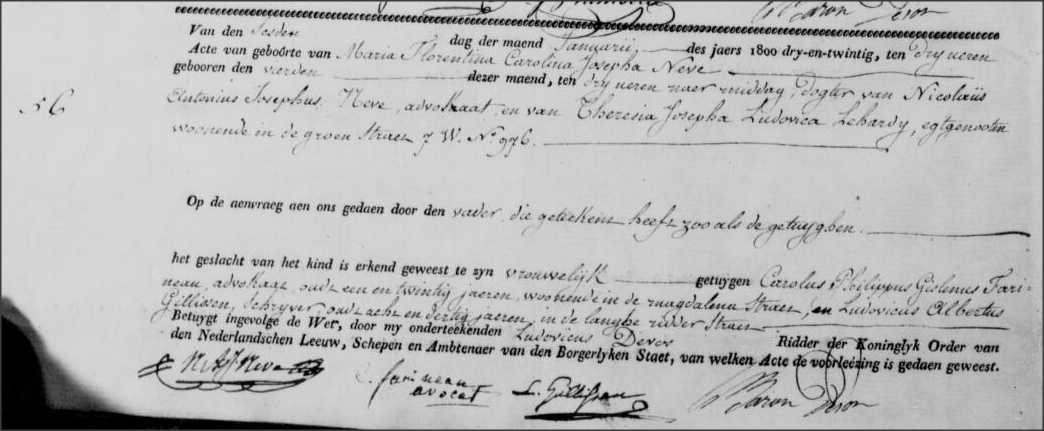 Baron Devos
Van den Sesden dag der maend Januarii des jaers 1800 dry-en-twintig, ten dry ueren
Acte van geboórte van Maria Florentina Carolina Josepha Neve
gebooren den vierden dezer maend, ten dry ueren naer middag, dogter van Nicolaüs
56
Antonius Josephus Neve, advokaat, en van Theresia Josepha Ludovica Lehardy, egtgenooten
woonende in de groen Straet 7 W. Nr. 976.
Op de aenvraeg aen ons gedaen door den vader, die geteekent heeft zoo als de getuyghen.
het geslacht van het kind is erkend geweest te zyn vrouwelijk getuygen Carolus Philippus Gislenus Fari-
neau, advokaat, oudt een en twintig jaeren, woonende in de magdalena Straet, en Ludovicus Albertus
Gillisen, schryver, oudt acht en dertig jaeren, in de langhe ridder Straet
Betuygt ingevolge de Wet, door my onderteekenden Ludovicus Devos Ridder der Koninglyk Order van
den Nederlandschen Leeuw, Schepen en Ambtenaer van den Borgerlyken Staet, van welken Acte de voorleézing is gedaen geweest.
N A J Neve
C. farineau
avocat
L. Gillissen
Baron Devos